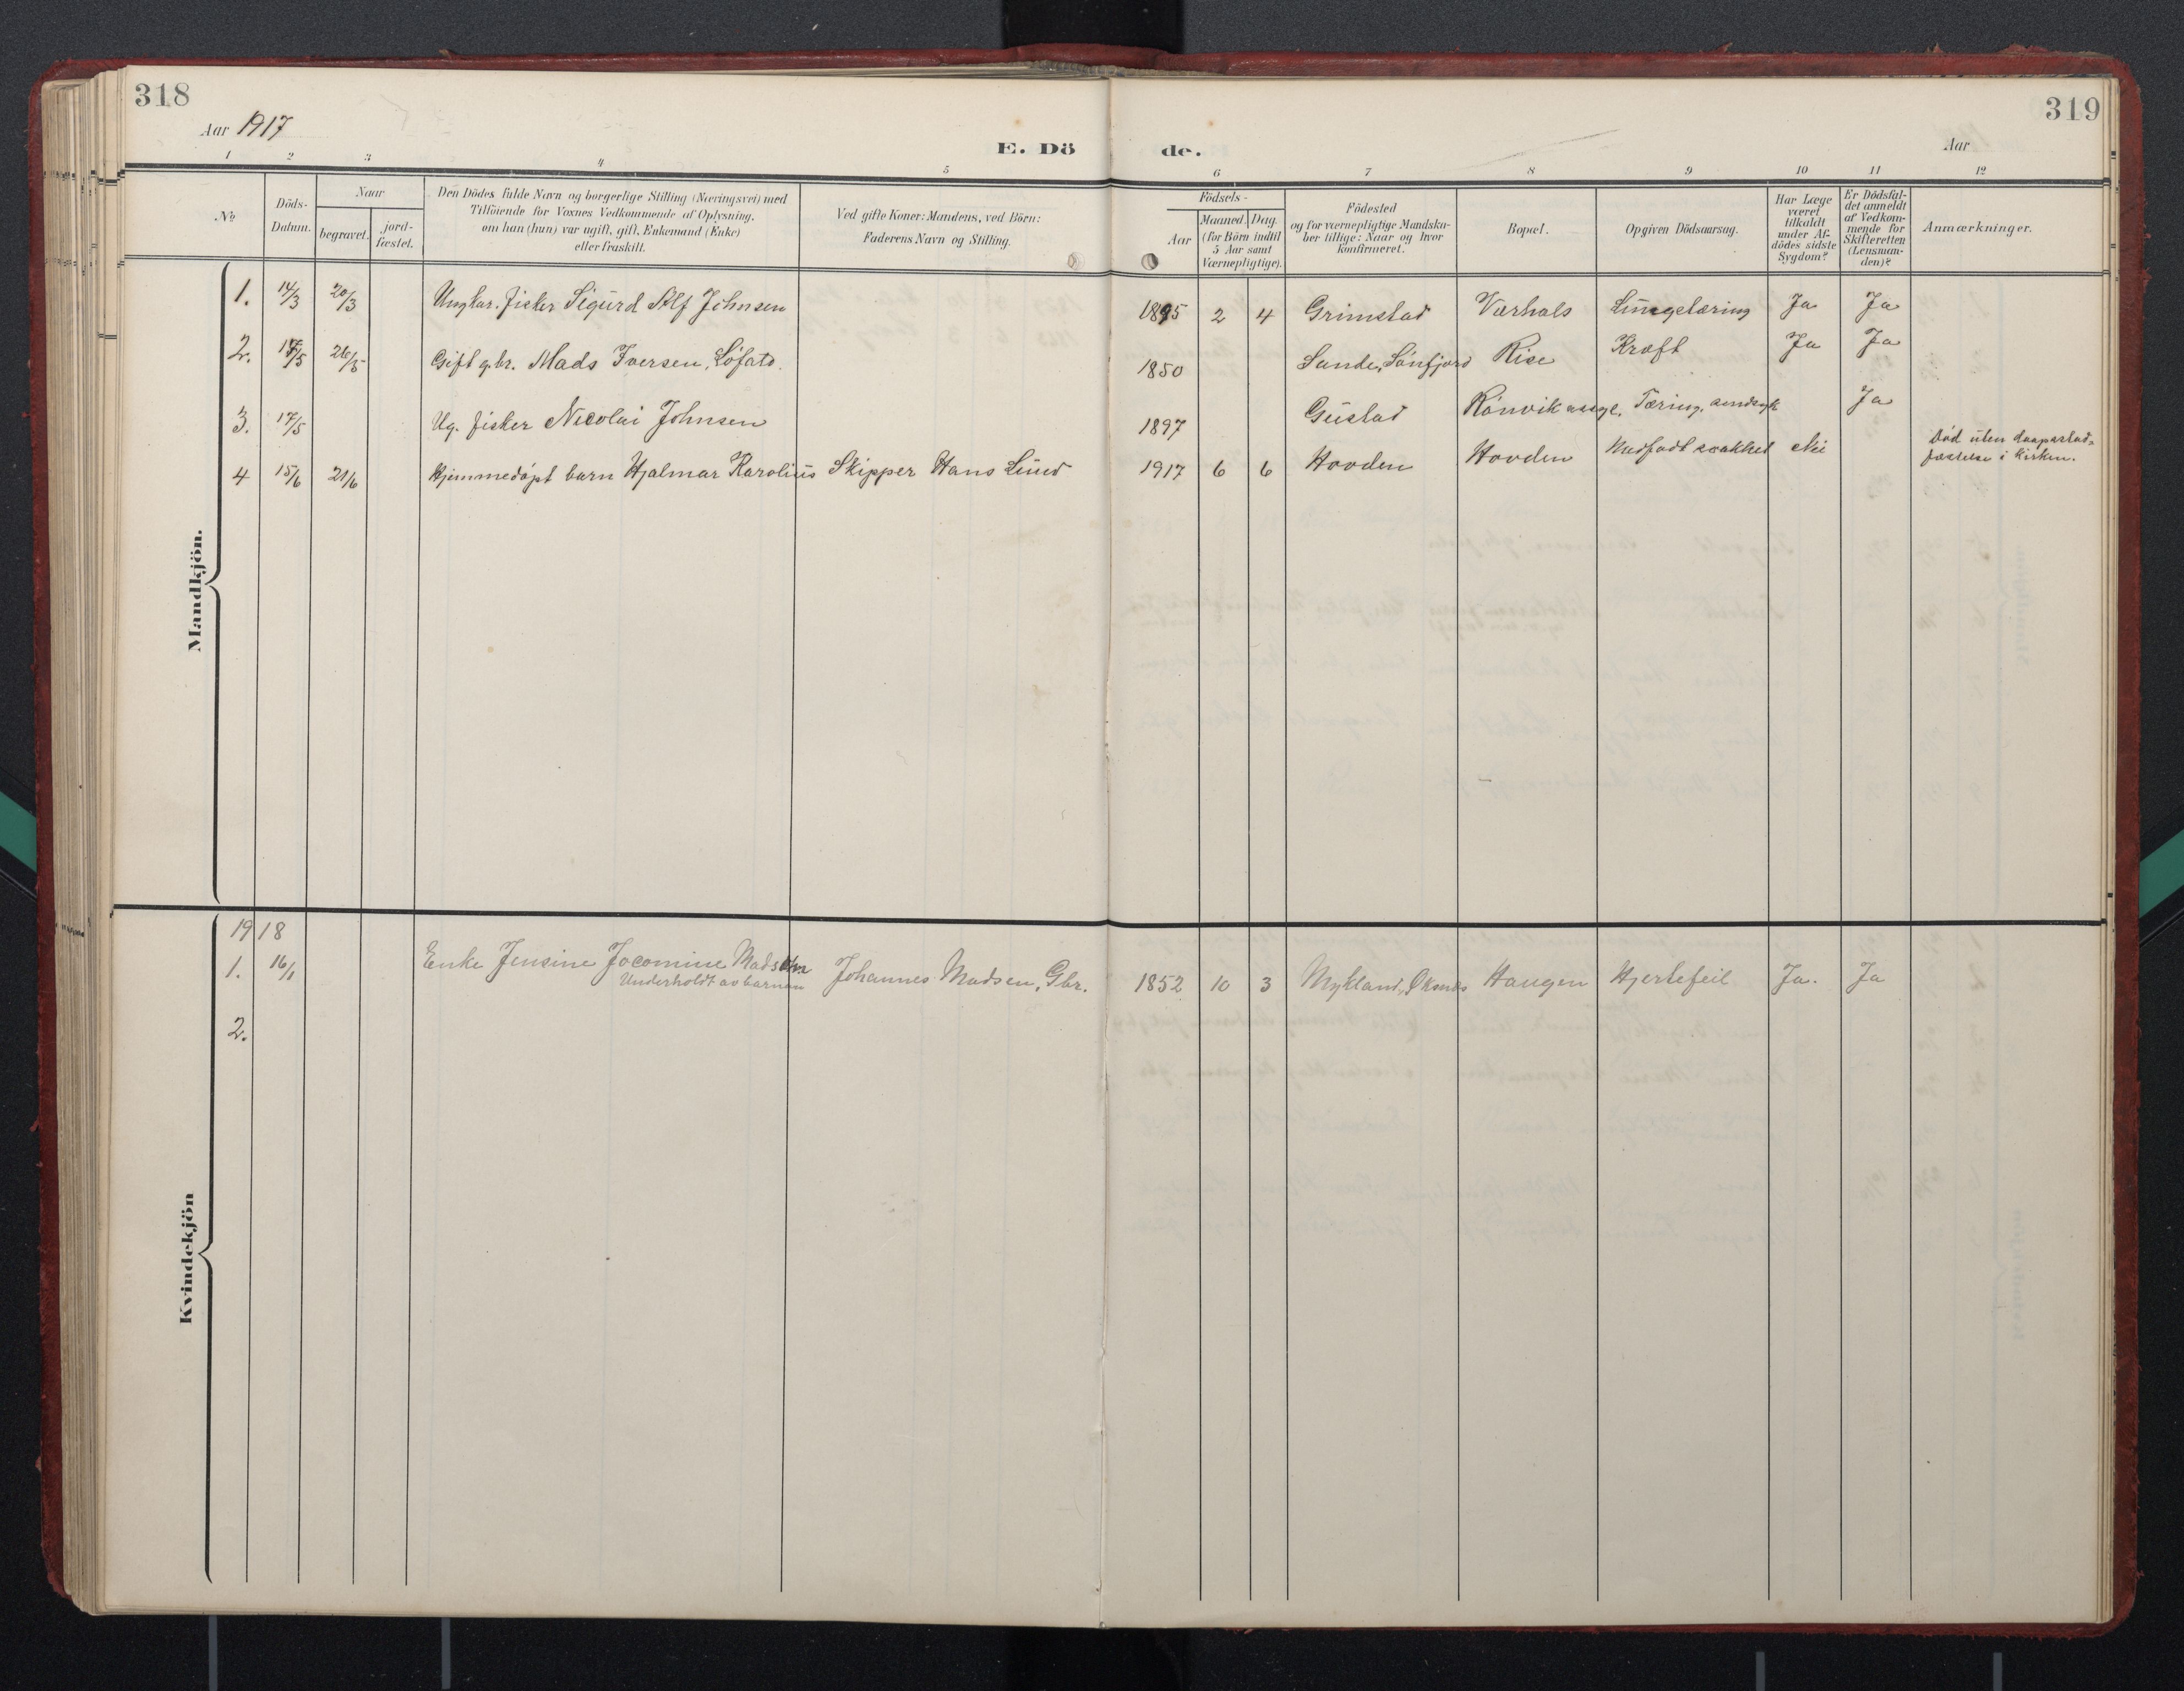 318
319
Aar 1917
E. Dö de.
Aar
1 2 3 4 5 6 7 8 9 10 11 12
No
Döds-
Datum.
Naar
begravet.
jord-
fæstet.
Den Dödes fulde Navn og borgerlige Stilling (Næringsvei) med
Tilföiende for Voxnes Vedkommende af Oplysning,
om han (hun) var ugift, gift, Enkemand (Enke)
eller fraskilt.
Ved gifte Koner: Mandens, ved Börn:
Faderens Navn og Stilling.
Födsels-
Aar
Maaned. Dag.
(for Börn indtil
5 Aar samt
Værnepligtige).
Födested
og for værnepligtige Mandska-
ber tillige: Naar og hvor
konfirmeret.
Bopæl.
Opgiven Dödsaarsag.
Har Læge
været
tilkaldt
under Af-
dödes sidste
Sygdom?
Er Dödsfal-
det anmeldt
af Vedkom-
mende for
Skifteretten
(Lensman-
den)?
Anmærkninger.
Mandkjön.
1. 14/3 20/3 Ungkar. fisker Sigurd Alf Johnsen 1895 2 4 Grimstad Værhals Lungetæring Ja Ja
2. /5 26/5 Gift gbr. Mads Iversen, Løfato. 1850 Sande, Søndfjord Rise Kræft Ja Ja
3. 17/5 Ug. fisker Nicolai Johnsen 1897 Gustad Rönvik asyl. Tæring, sindsyk Ja
4 15/6 21/6 Hjemmedøpt barn Hjalmar Karolius Skipper Hans Lund 1917 6 6 Hovden Hovden Medfødt svakhet Nei Død uten daapsstad-
fæstelse i kirken.
Kvindekjön
1918
1. 16/1 Enke Jensine Jacomine Madsen Johannes Madsen, Gbr. 1852 10 3 Mykland, Øksnes Haugen Hjertefeil Ja. Ja
Underholdt av barnen
2.